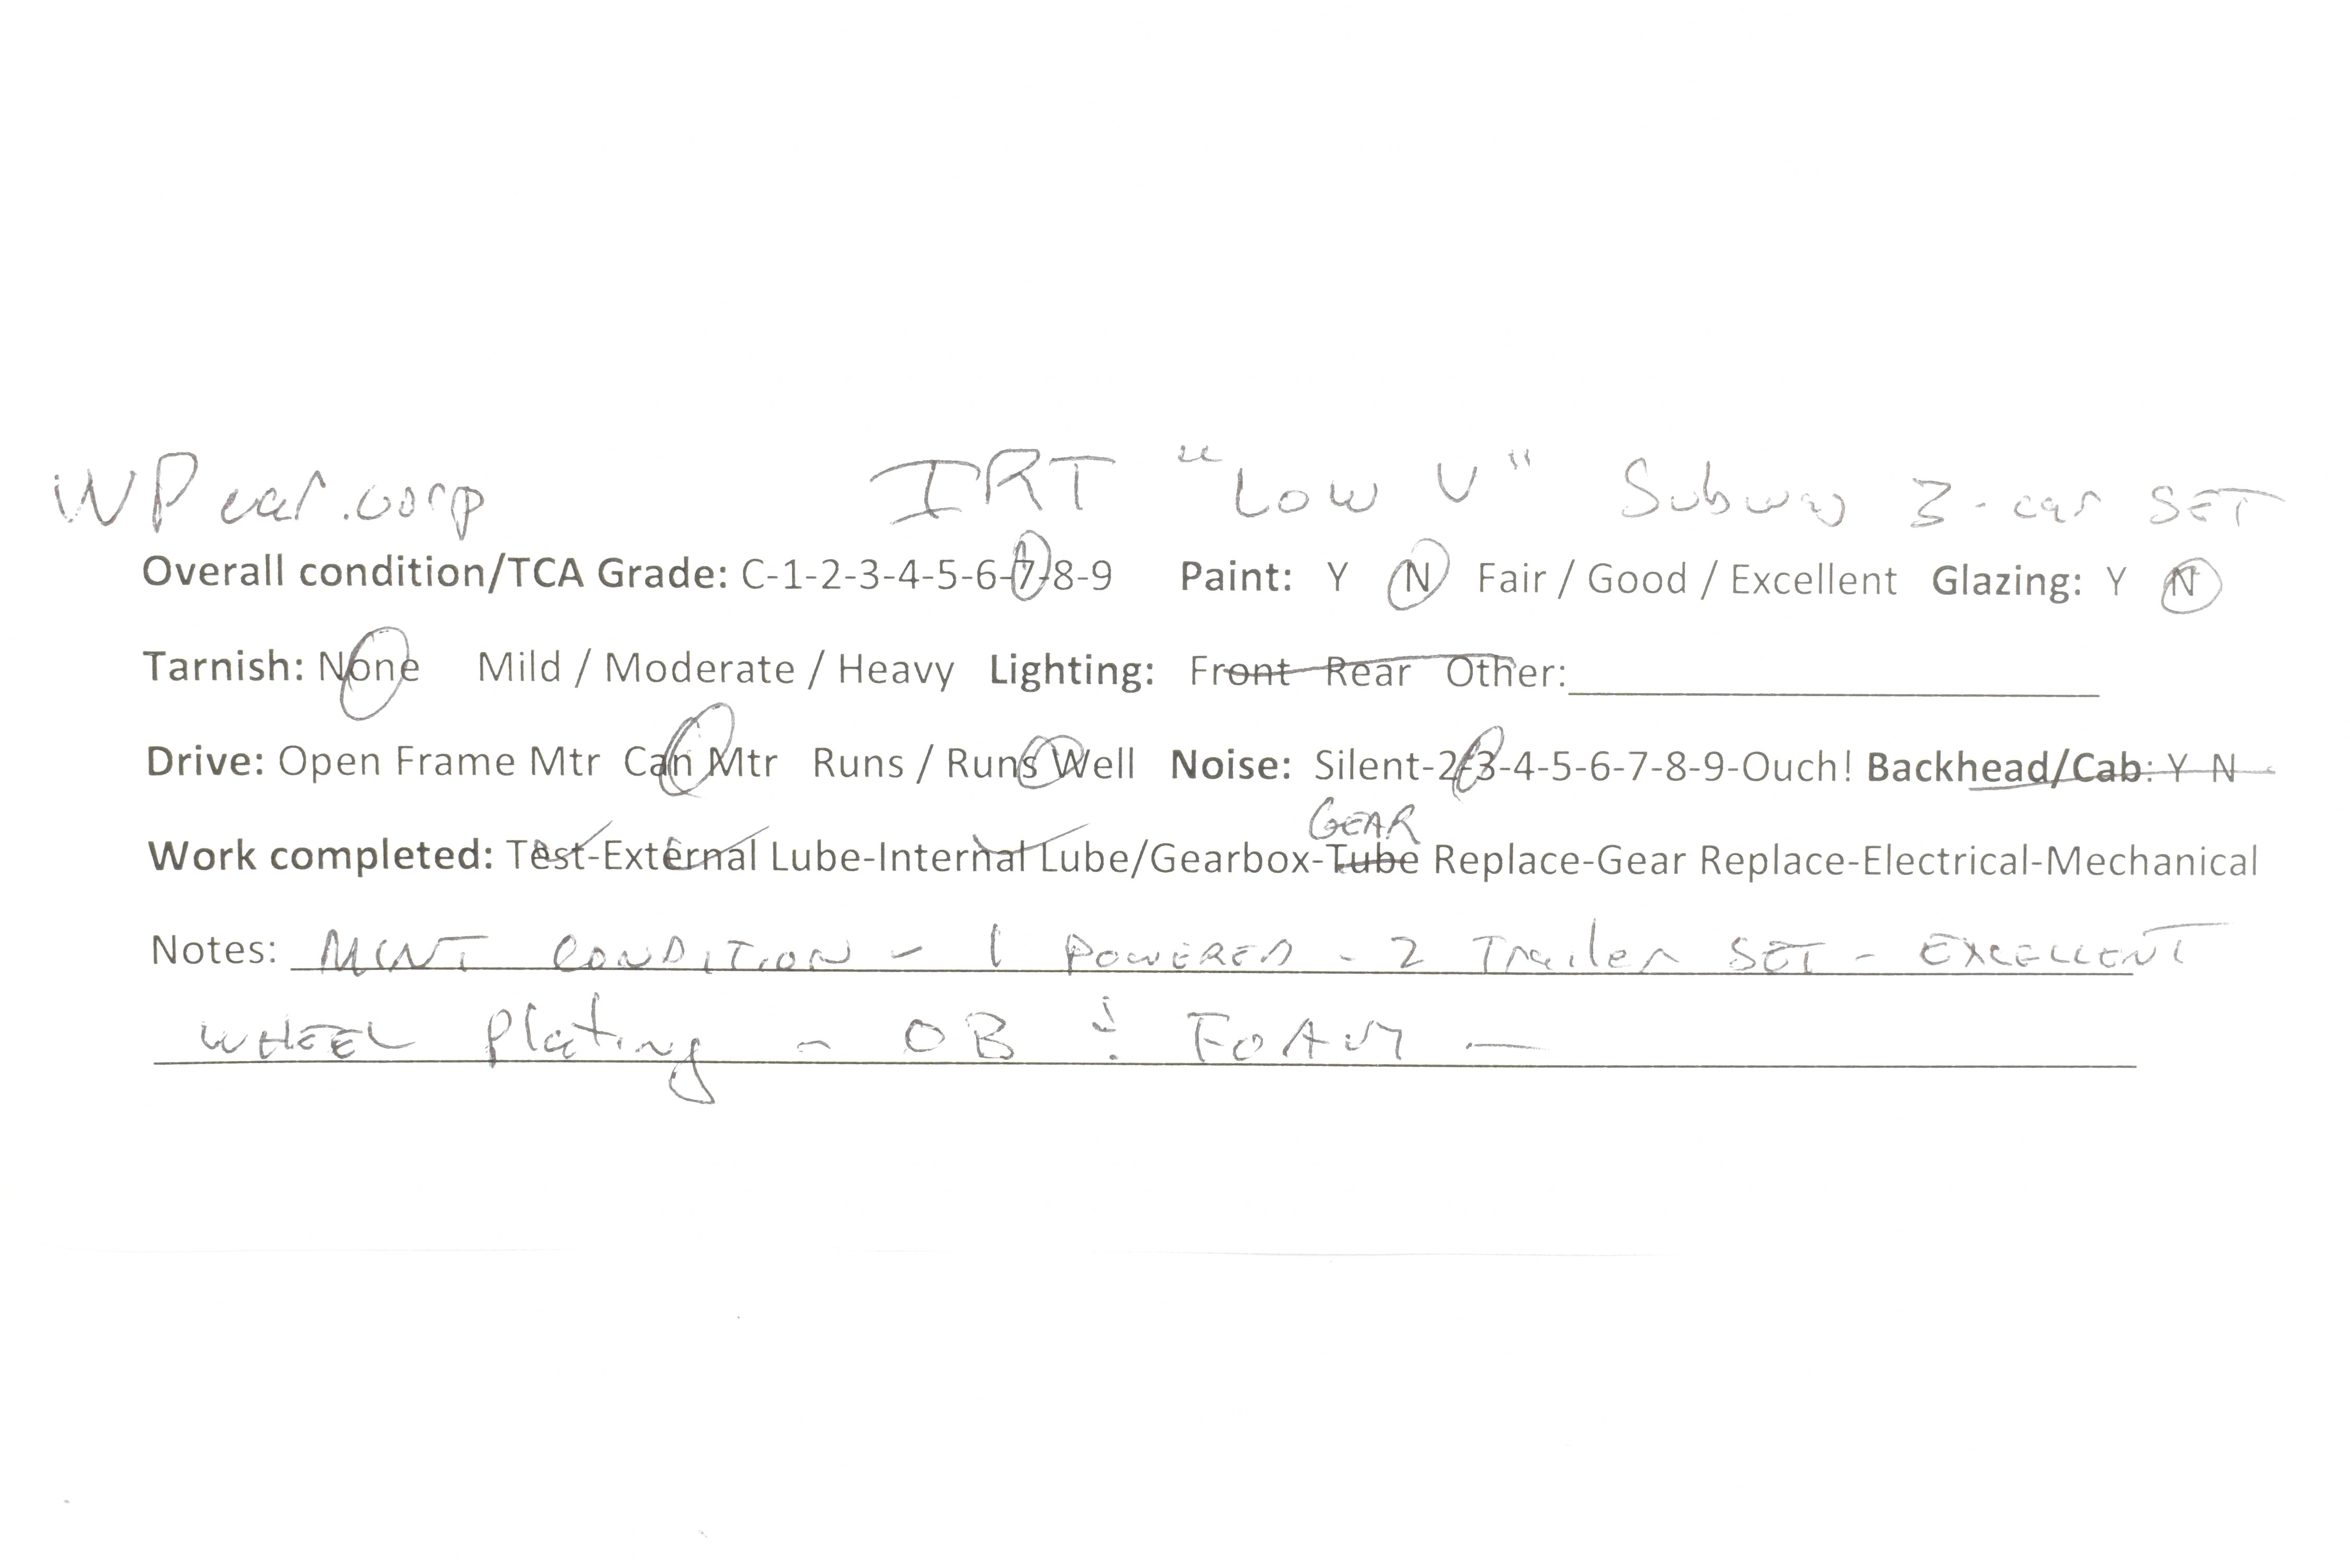 WP car.corp IRT "Low V" Subway 3-car SET
Overall condition/TCA Grade: C-1-2-3-4-5-6-7-8-9 Paint: Y N Fair / Good / Excellent Glazing: Y N
Tarnish: None Mild / Moderate / Heavy Lighting: Front Rear Other:
Drive: Open Frame Mtr Can Mtr Runs / Runs Well Noise: Silent-2-3-4-5-6-7-8-9-Ouch! Backhead/Cab: Y N
GEAR
Work completed: Test-External Lube-Internal Lube/Gearbox-Tube Replace-Gear Replace-Electrical-Mechanical
Notes: MINT CONDITION - 1 POWERED - 2 Trailer SET - EXCELLENT
WHEEL Plating - OB & FOAM -